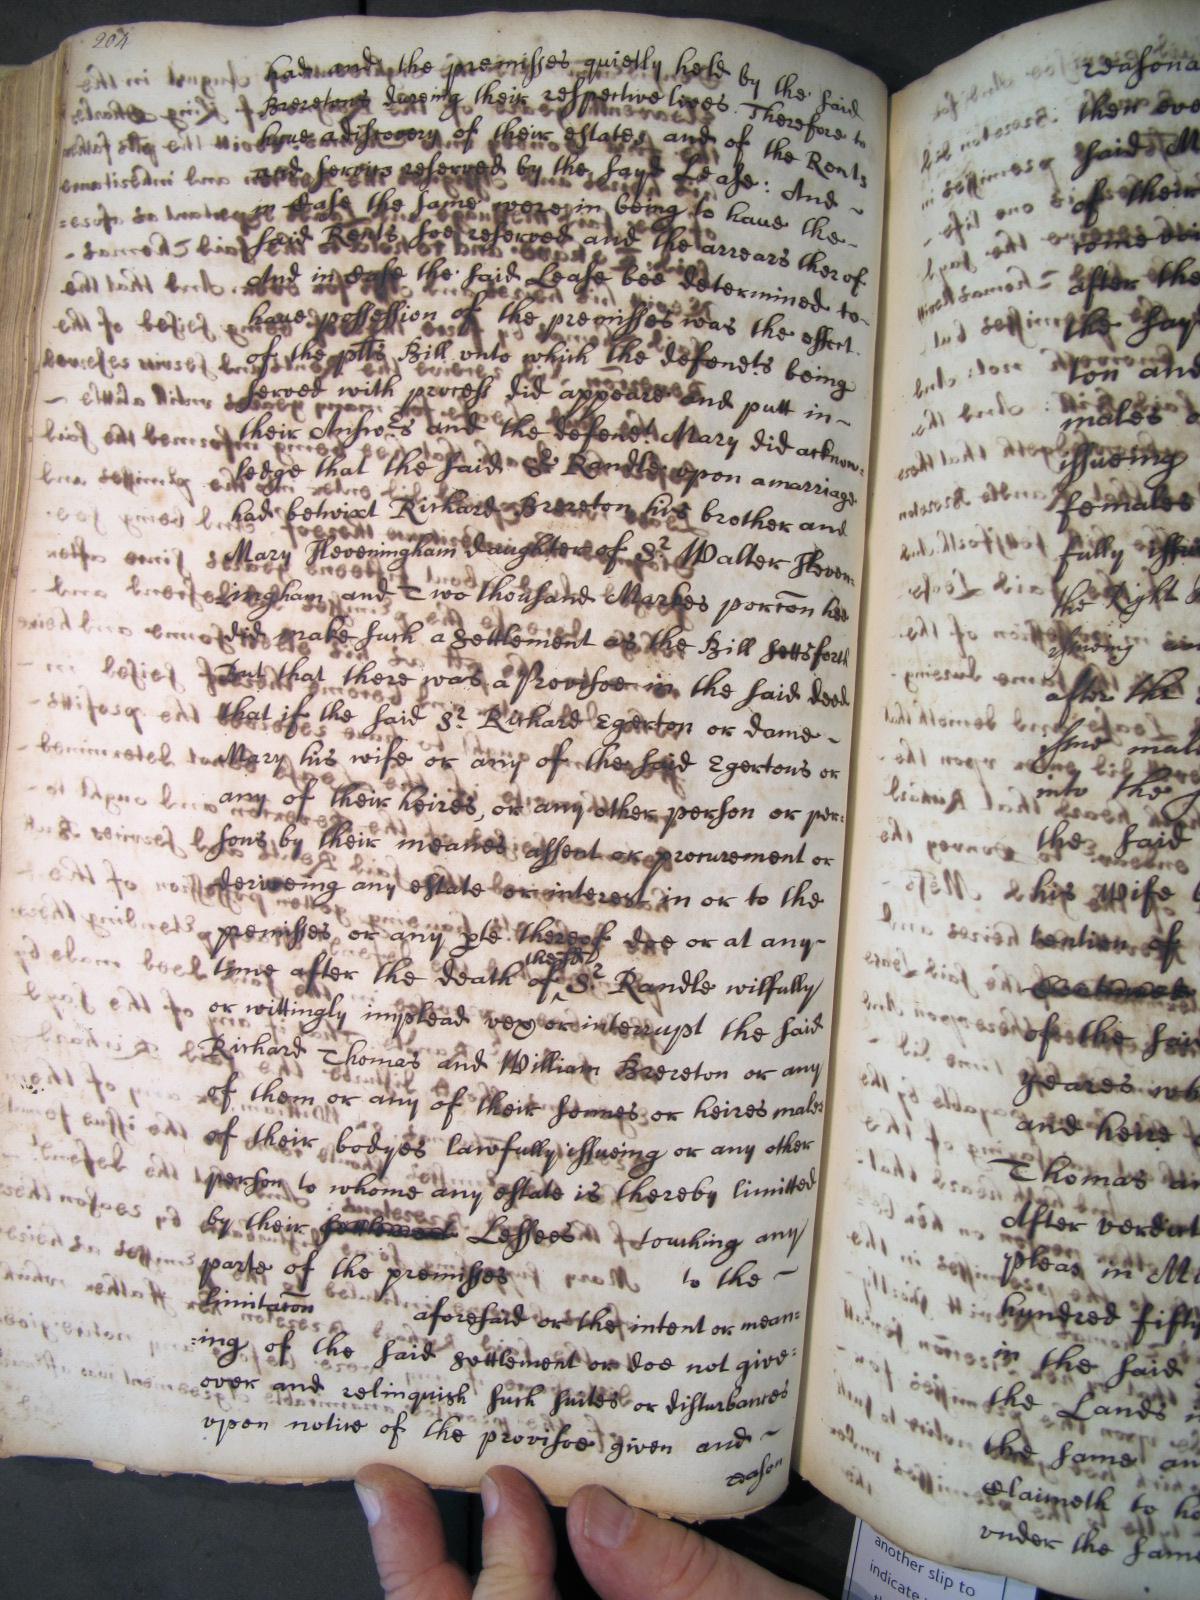 204
had and the premisses quietly held by the said
Breretons dureing their respective lives Therefore to
have a discovery of their estates and of the Rents
and services reserved by the sayd Lease: And ~
in Case the same were in being to have the -
said Rents soe reserved and the arrears therof
And in Case the said Lease bee determined to -
have possession of the premisses was the effect
of the plts Bill unto which the defendts being
served with process did appeare and putt in ~
their Answrs and the defendt Mary did acknow:
ledge that the said Sr Randle upon a marriage
had betwixt Richard Brereton his brother and
Mary Heveningham daughter of Sr Walter Heven:
lingham and Two thousand Markes porcon hee
did make such a settlement as the Bill settsforth
But that there was a Provisoe in the said deed
that if the said Sr Richard Egerton or dame ~
Mary his wife or any of the said Egertons or
any of their heires, or any other person or per:
sons by their meanes assent or procurement or
deriveing any estate or interest in or to the
premisses or any pte thereof doe or at any ~
time after the death of the sd Sr Randle wilfully
or wittingly implead vex or interrupt the said
Richard Thomas and William Brereton or any
of them or any of their sonnes or heires males
of their bodyes lawfully issueing or any other
person to whome any estate is thereby limitted
by their settlement Lessees touching any
parte of the premisses to the ~
limitacon aforesaid or the intent or mean:
:ing of the said settlement or doe not give:
over and relinquish such suites or disturbances
upon notice of the provisoe given and ~
reasona
then
said
of their
after the
the say
ton and
males
issueing
females
fully
the Right
issueing
after the
issue male
into the
the said
his Wife
tention of
of the said
yeares
and heire
Thomas an
After verdict
pleas in
hundred fifty
in the said
the Lands
the same an
Claimeth to
under the same
another slip to
indicate